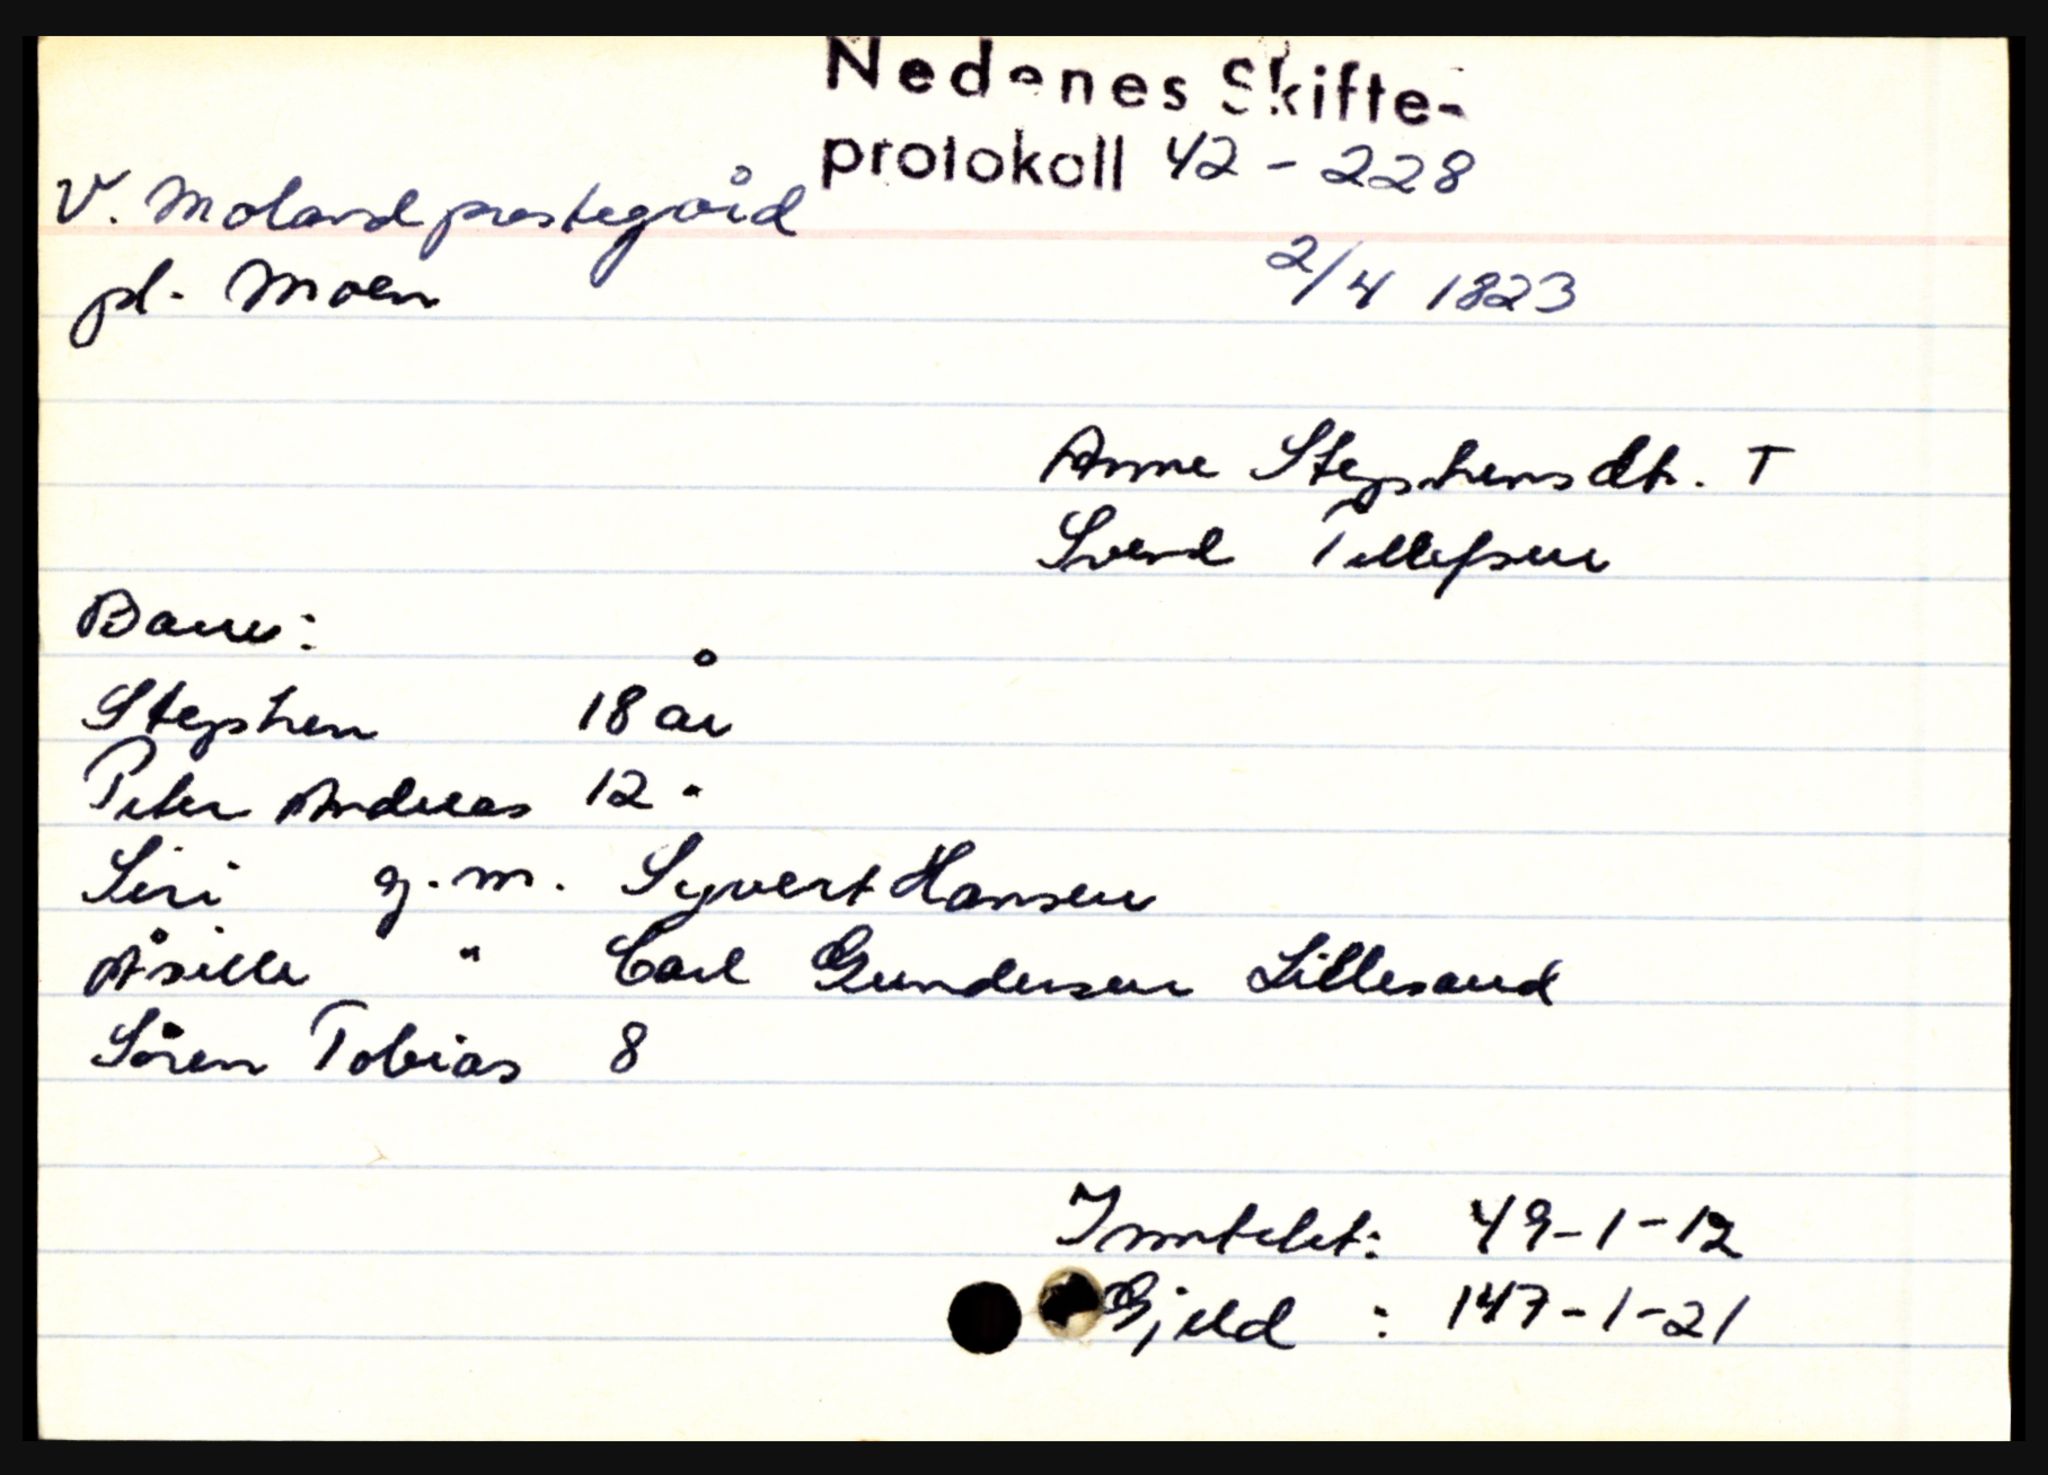 Nedenes Skifte-
protokoll 42 - 228
V. Moland prestegård
pl. Moen
2/4 1823
Anne Stephensdtr. T
Svend Tellefsen
Barn:
Stephen 18 år
Peter Andreas 12 "
Siri g.m. Syvert Hansen
Åsille " Carl Gundersen Lillesand
Sören Tobias 8
Inntekt: 49-1-12
Gjeld : 147-1-21